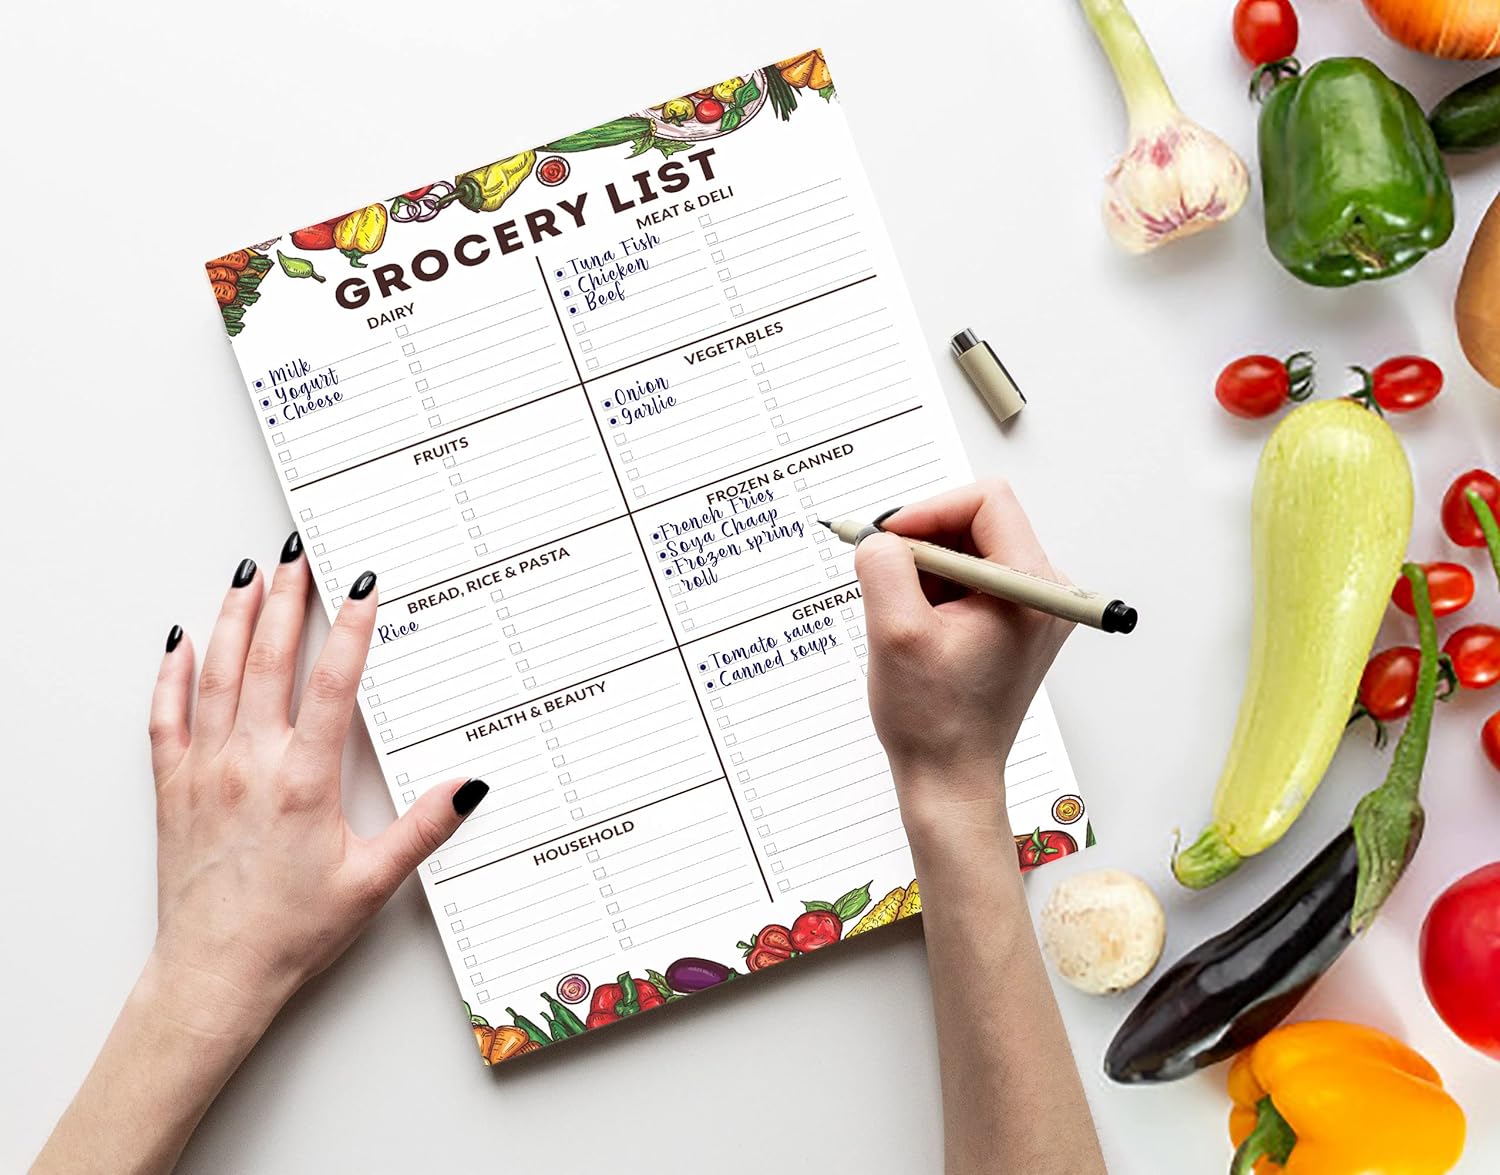 GROCERY LIST
DAIRY
Milk
Yogurt
Cheese
FRUITS
BREAD, RICE & PASTA
Rice
HEALTH & BEAUTY
HOUSEHOLD
MEAT & DELI
Tuna Fish
Chicken
Beef
VEGETABLES
Onion
Garlic
FROZEN & CANNED
French Fries
Soya Chaap
Frozen spring
roll
GENERAL
Tomato sauce
Canned soups